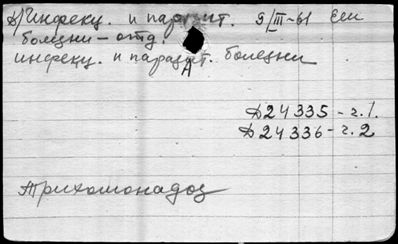 А) Инфекц. и паразит. 9/III-61
болезни - отд.
инфекц. и паразит. болезни
А
Д24335 - ч.1.
Д24336 - ч.2
Трихомонадоз